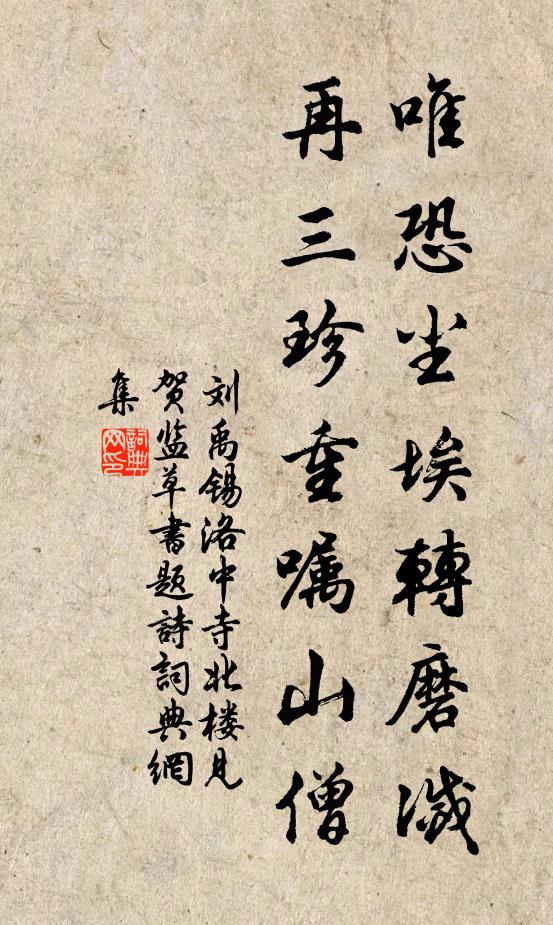 唯恐尘埃轉磨滅
再三珍重嘱山僧
刘禹锡洛中寺北楼见
贺监草書題詩詞典網
集
詞典网印